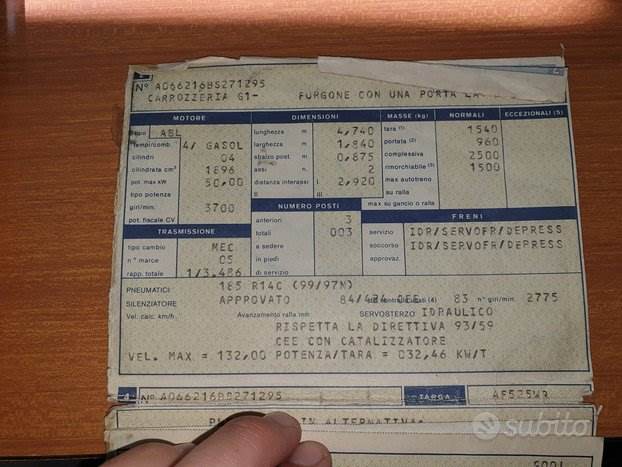 N° A066216BS271295
CARROZZERIA G1- FURGONE CON UNA PORTA LA
MOTORE
tipo ABL
tempi/comb. 4/ GASOL
cilindri 04
cilindrata cm³ 1896
pot. max kW 50,00
tipo potenza
giri/min. 3700
pot. fiscale CV
TRASMISSIONE
tipo cambio MEC
n° marce 05
rapp. totale 1/3.486
DIMENSIONI
lunghezza m 4,740
larghezza m 1,840
sbalzo post. m 0,875
assi n. 2
distanza interassi I 2,920
II
III
NUMERO POSTI
anteriori 3
totali 003
a sedere
in piedi
di servizio
MASSE (kg) NORMALI ECCEZIONALI (5)
tara (1) 1540
portata (2) 960
complessiva 2500
rimorchiabile (3) 1500
max autotreno
su ralla
max su gancio o ralla
FRENI
servizio IDR/SERVOFR/DEPRESS
soccorso IDR/SERVOFR/DEPRESS
approvaz.
PNEUMATICI 185 R14C (99/97N)
SILENZIATORE APPROVATO 84/424 CEE (4) 83 n° giri/min. 2775
Vel. calc. km/h. Avanzamento ralla mm SERVOSTERZO IDRAULICO
RISPETTA LA DIRETTIVA 93/59
CEE CON CATALIZZATORE
VEL. MAX = 132,00 POTENZA/TARA = 032,46 KW/T
4 N° A066216BS271295 TARGA AF525WR
IN ALTERNATIVA:
subito